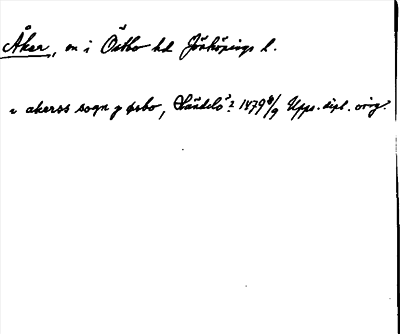 Åker, sn i Östbo hd Jönköpings l.
i akerss sogn j østbo, 1479 8/9 Upps. dipl. orig.